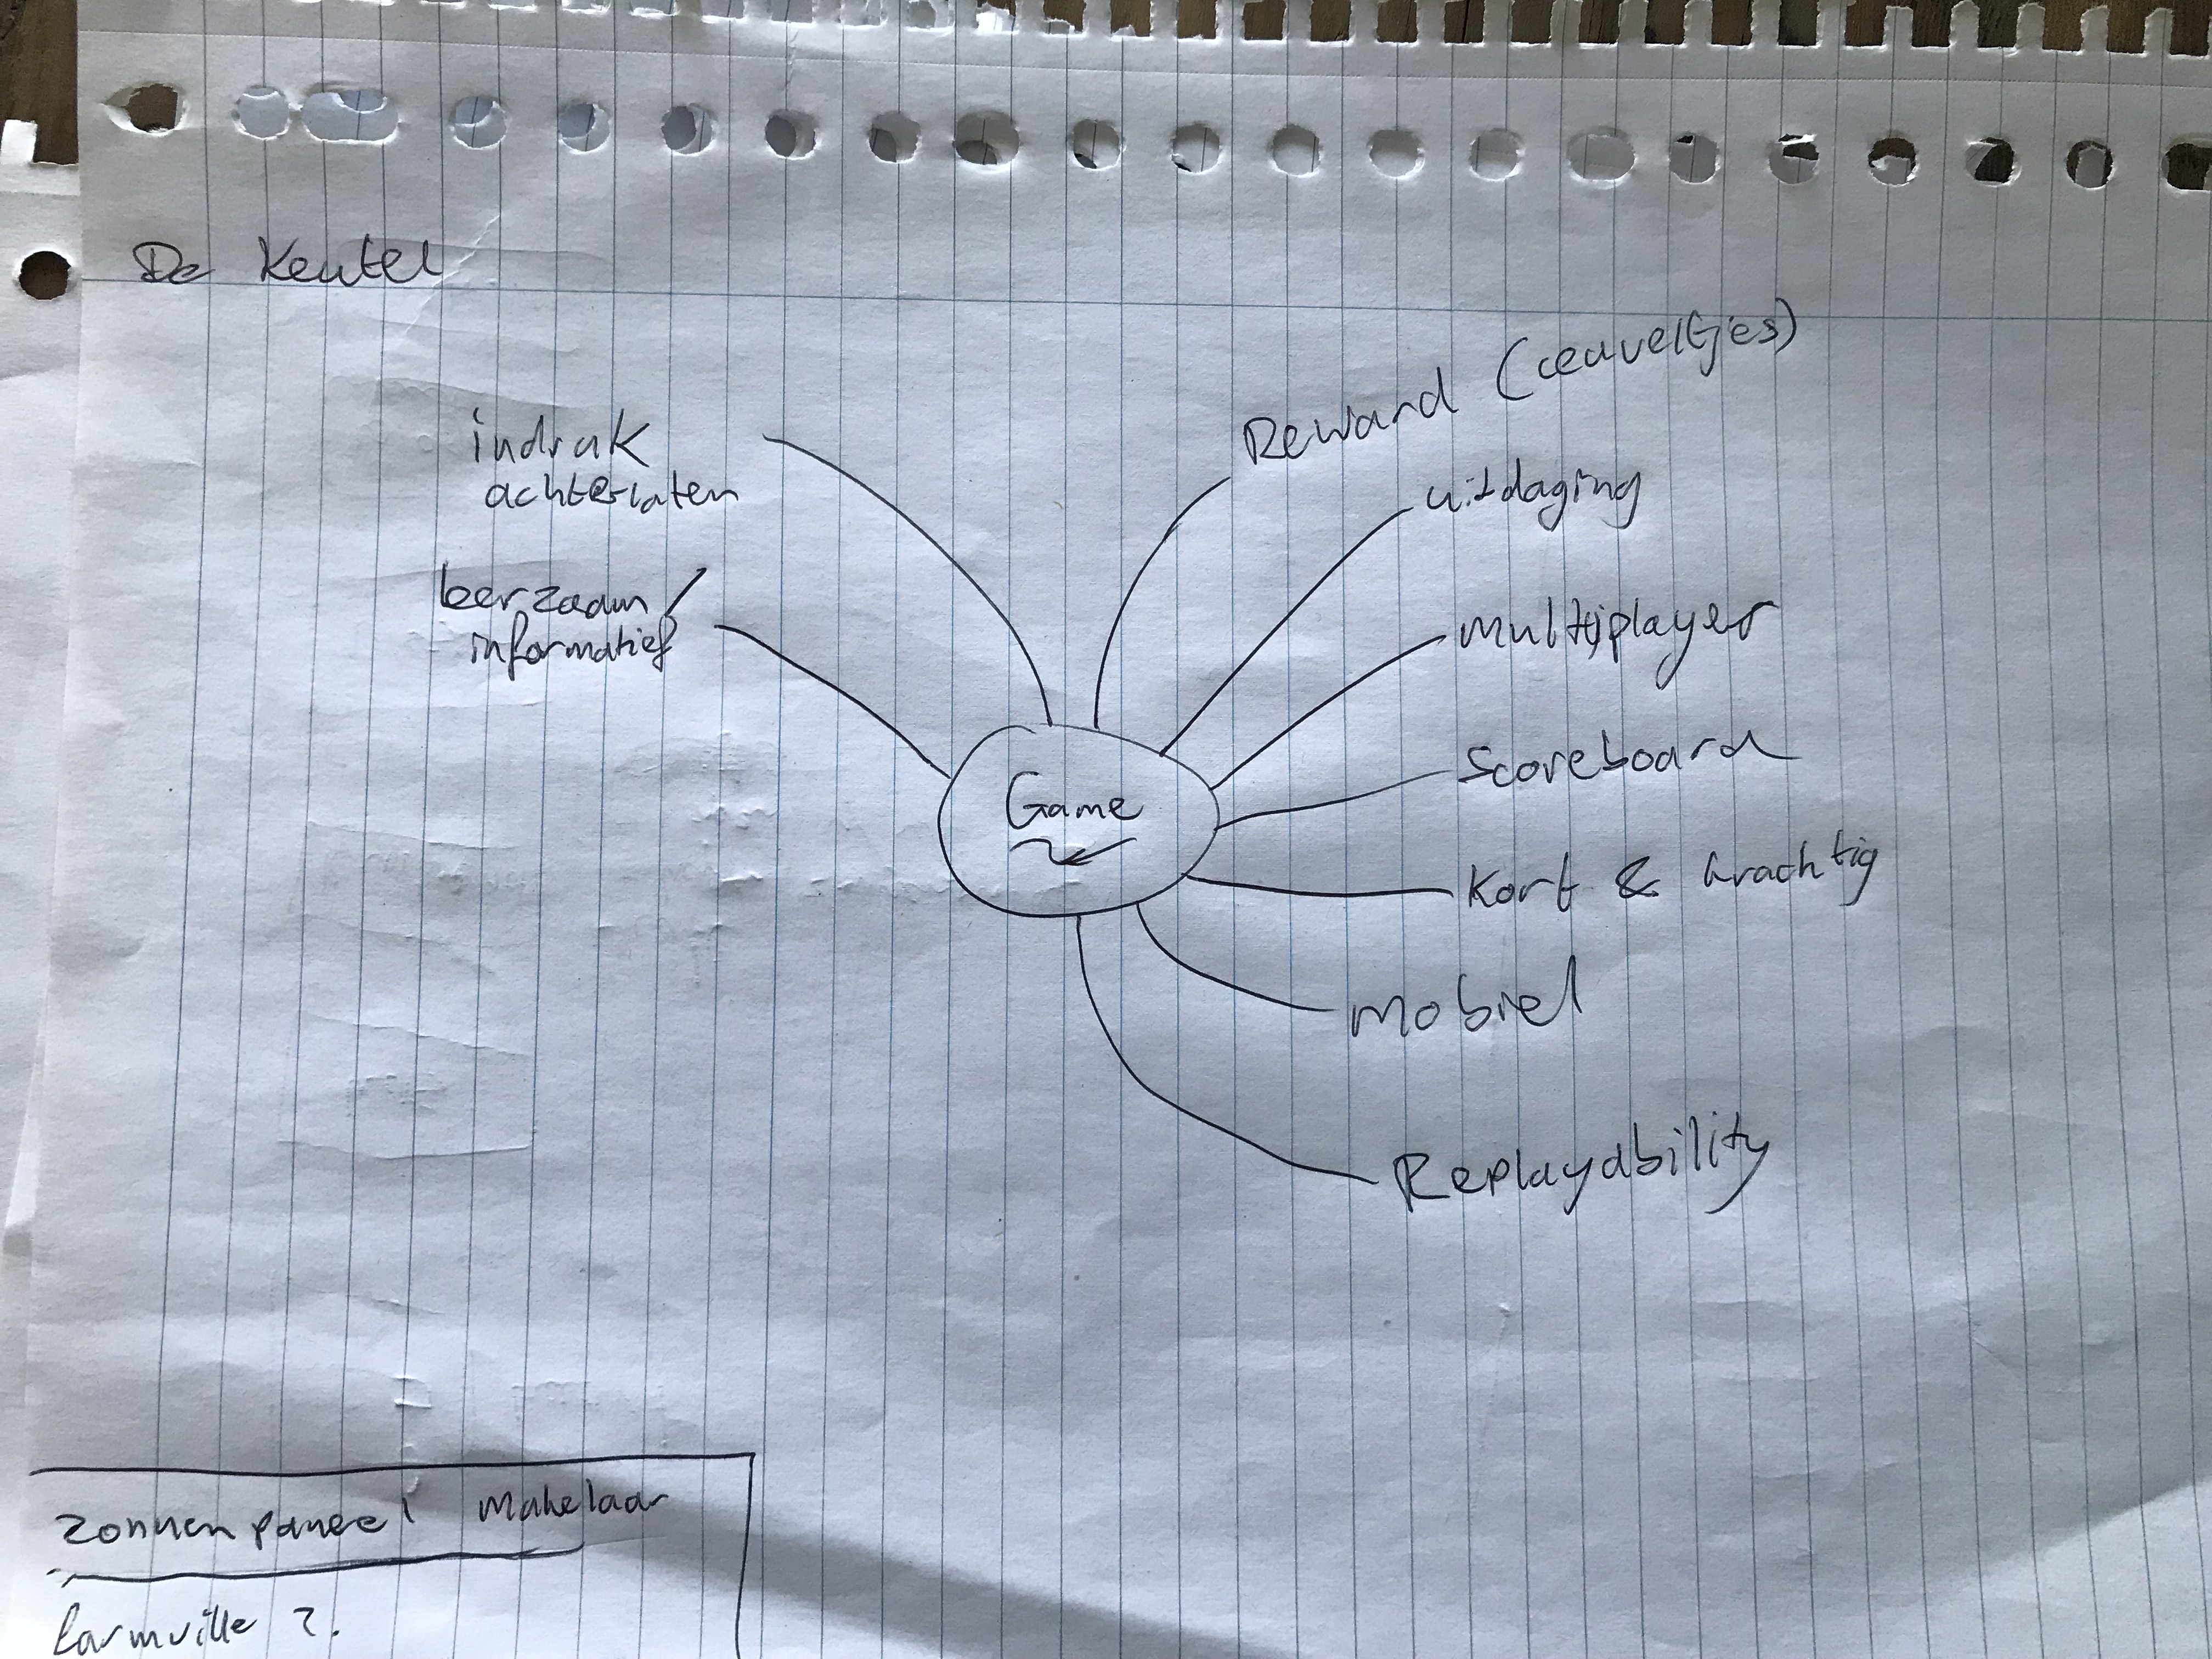 De Keutel
indruk
achterlaten
leerzaam/
informatief
Game
Reward (ceaveltjes)
uitdaging
multiplayer
Scoreboard
Kort & krachtig
mobiel
Replayability
zonnenpaneel makelaar
farmville?